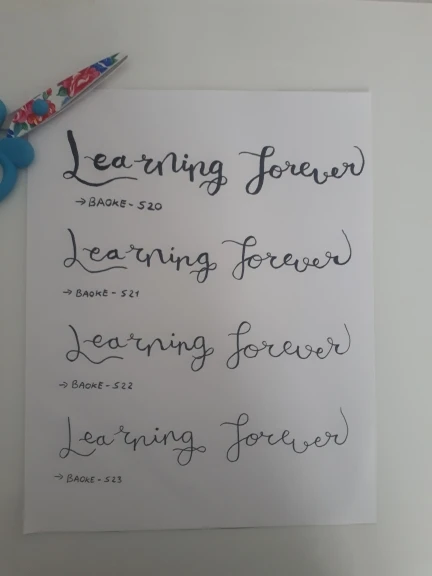 Learning forever
→ BAOKE - S20
Learning forever
→ BAOKE - S21
Learning forever
→ BAOKE - S22
Learning forever
→ BAOKE - S23